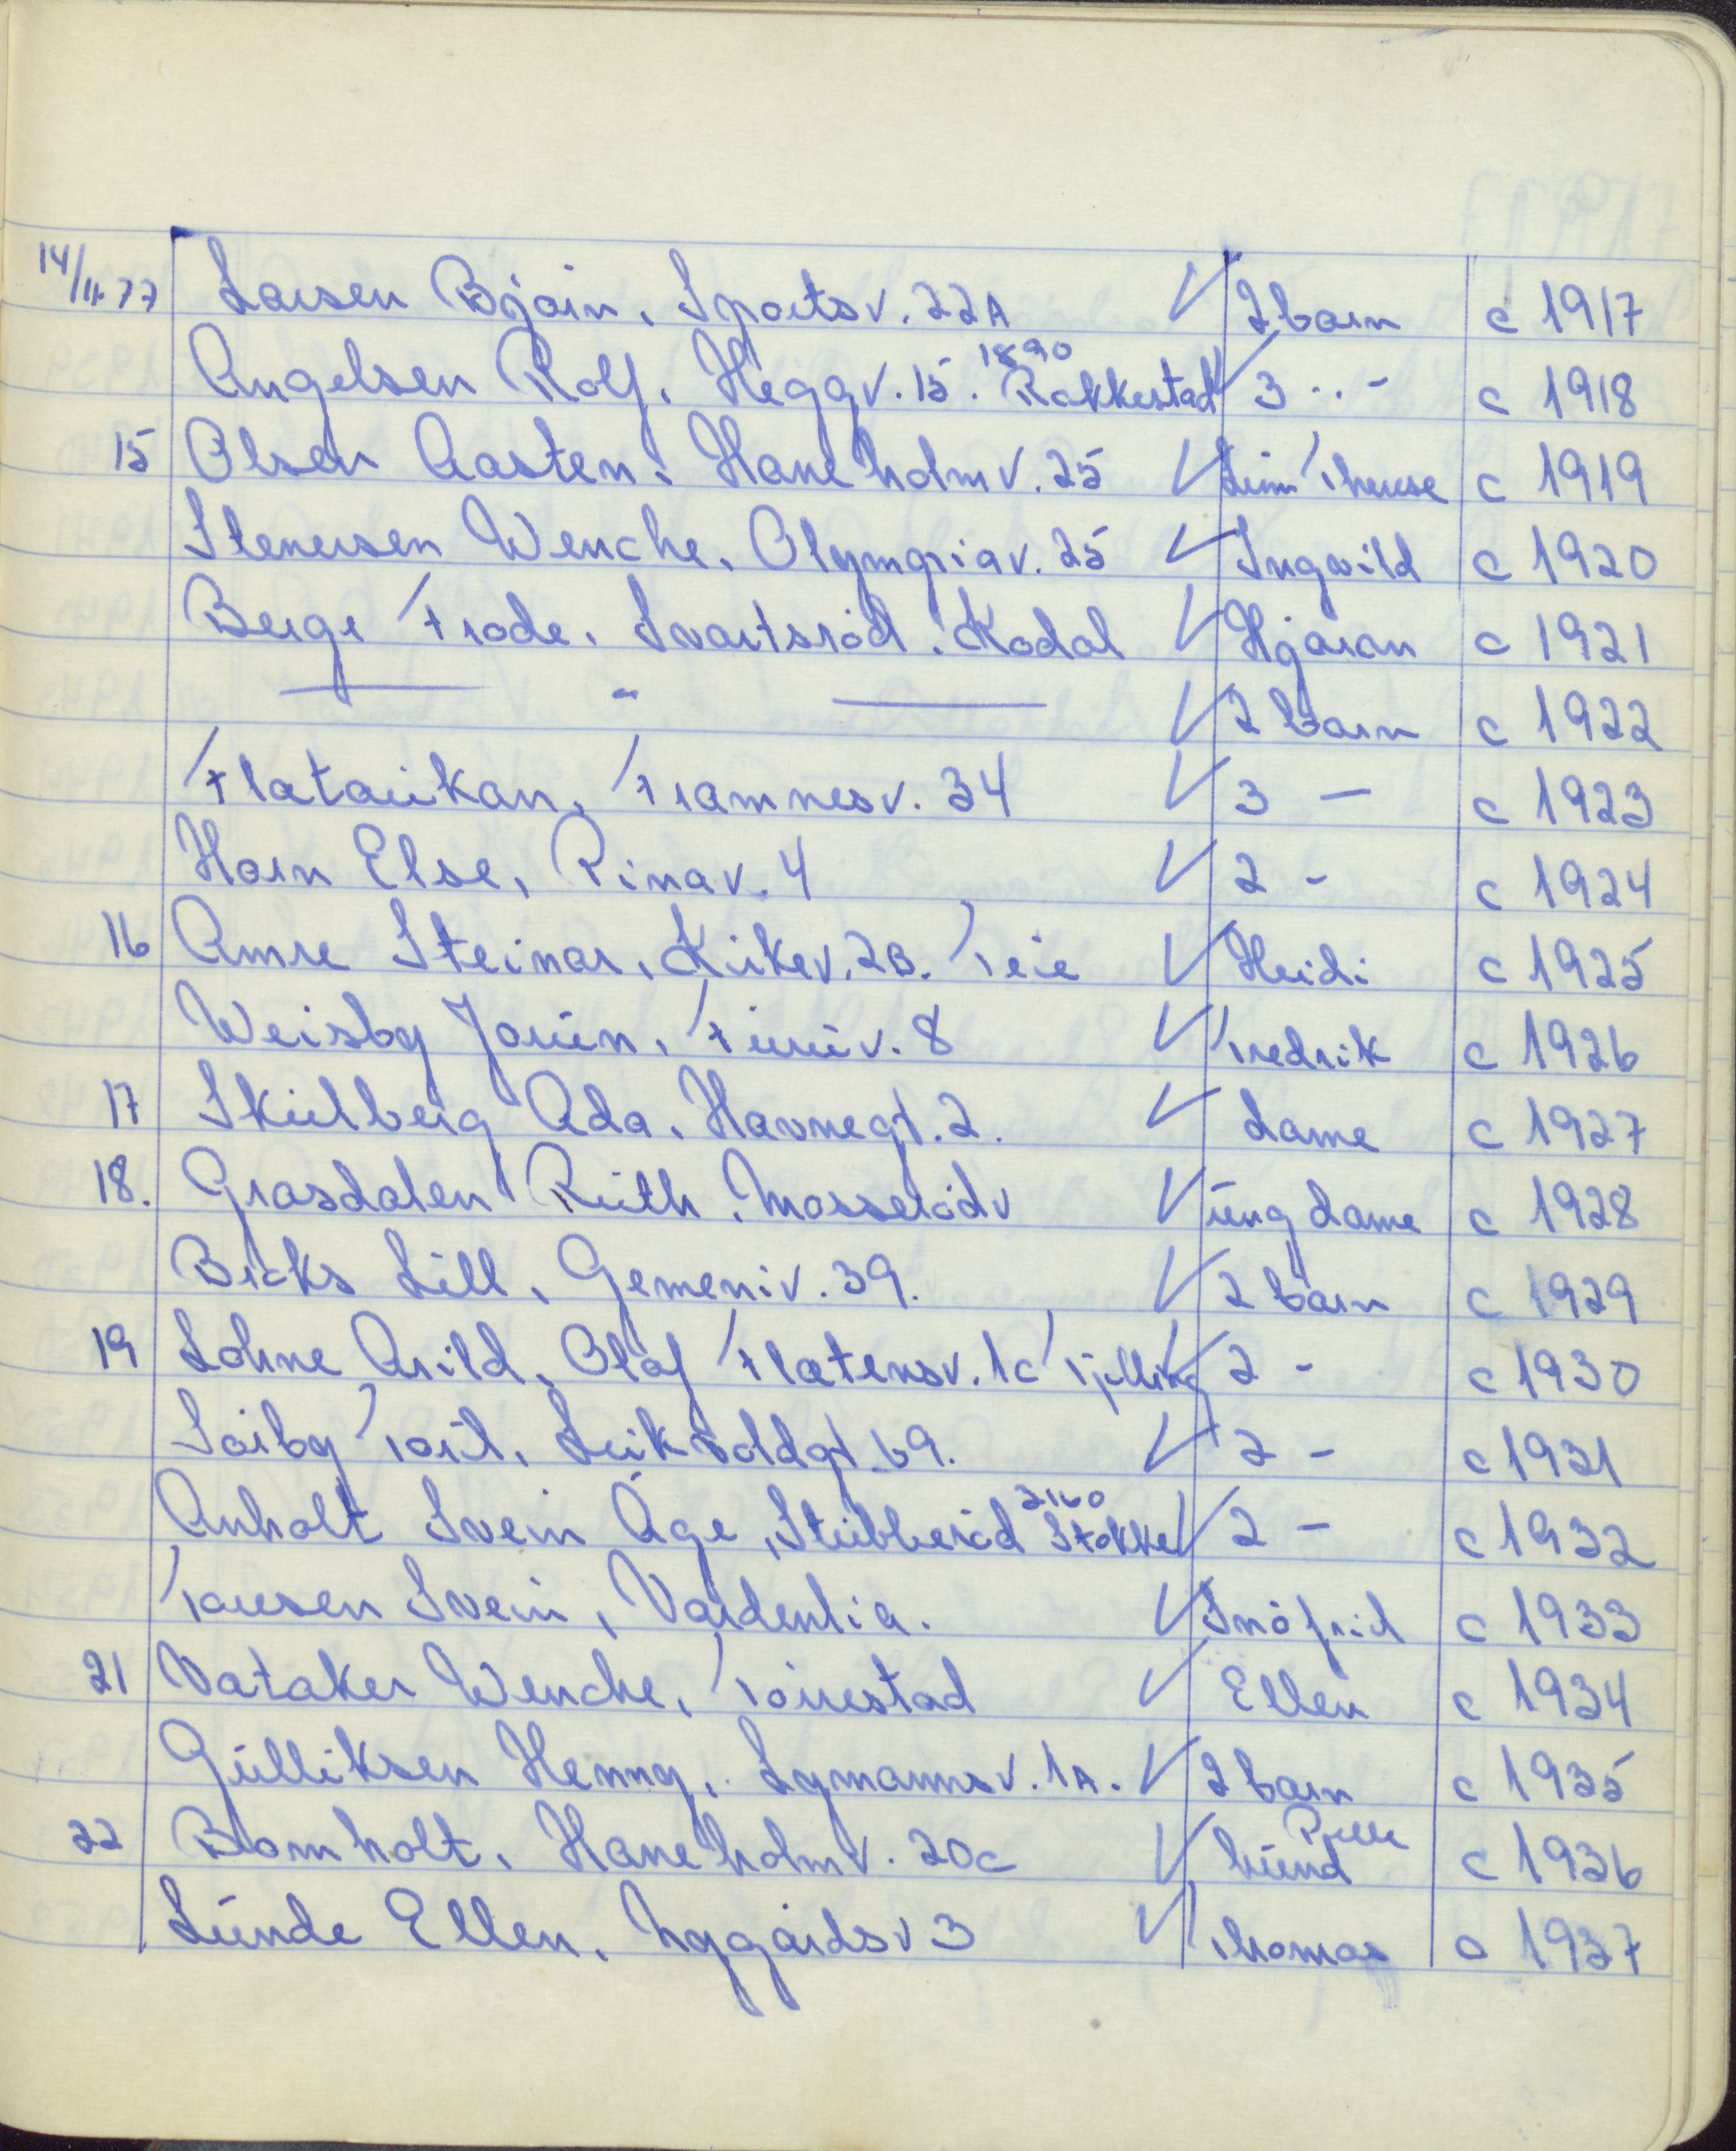 14/11-77 Larsen Bjørn, Sportsv. 22A V 2 barn c 1917
Angelsen Rolf, Heggv. 15. 1890 Rakkestad V 3 ․․ - c 1918
15 Olsen Aasten, Haneholmv. 25 V Linn Therese c 1919
Stenersen Wenche, Olympiav. 25 V Ingvild c 1920
Berge Frode, Svartsrød, Kodal V Hjaran c 1921
— " — V 2 barn c 1922
Flatairikan, Framnesv. 34 V 3 — c 1923
Horn Else, Rinav. 4 V 2 - c 1924
16 Amre Steinar, Kirkev. 2B. Teie V Heidi c 1925
Weisby Jørun, Furuv. 8 V Fredrik c 1926
17 Skulberg Ada, Havnegt. 2. V Dame c 1927
18. Grasdalen Ruth, Mosserødv V ung dame c 1928
Bucks Lill, Gemeniv. 39. V 2 barn c 1929
19 Lohne Arild, Olaf Flatensv. 1c Tjølling V 2 - c 1930
Sørby Toril, Leikvoldgt. 69. V 2 - c 1931
Anholt Svein Åge, Stubberød 3160 Stokke V 2 - c 1932
Taresen Svein, Vardenlia. V Snøfrid c 1933
21 Vataker Wenche, Torrestad V Ellen c 1934
Gulliksen Henny, Lymannsv. 1A. V 2 barn c 1935
22 Bomholt, Haneholmv. 20c V hund Pelle c 1936
Lunde Ellen, Nygårdsv 3 V Thomas c 1937